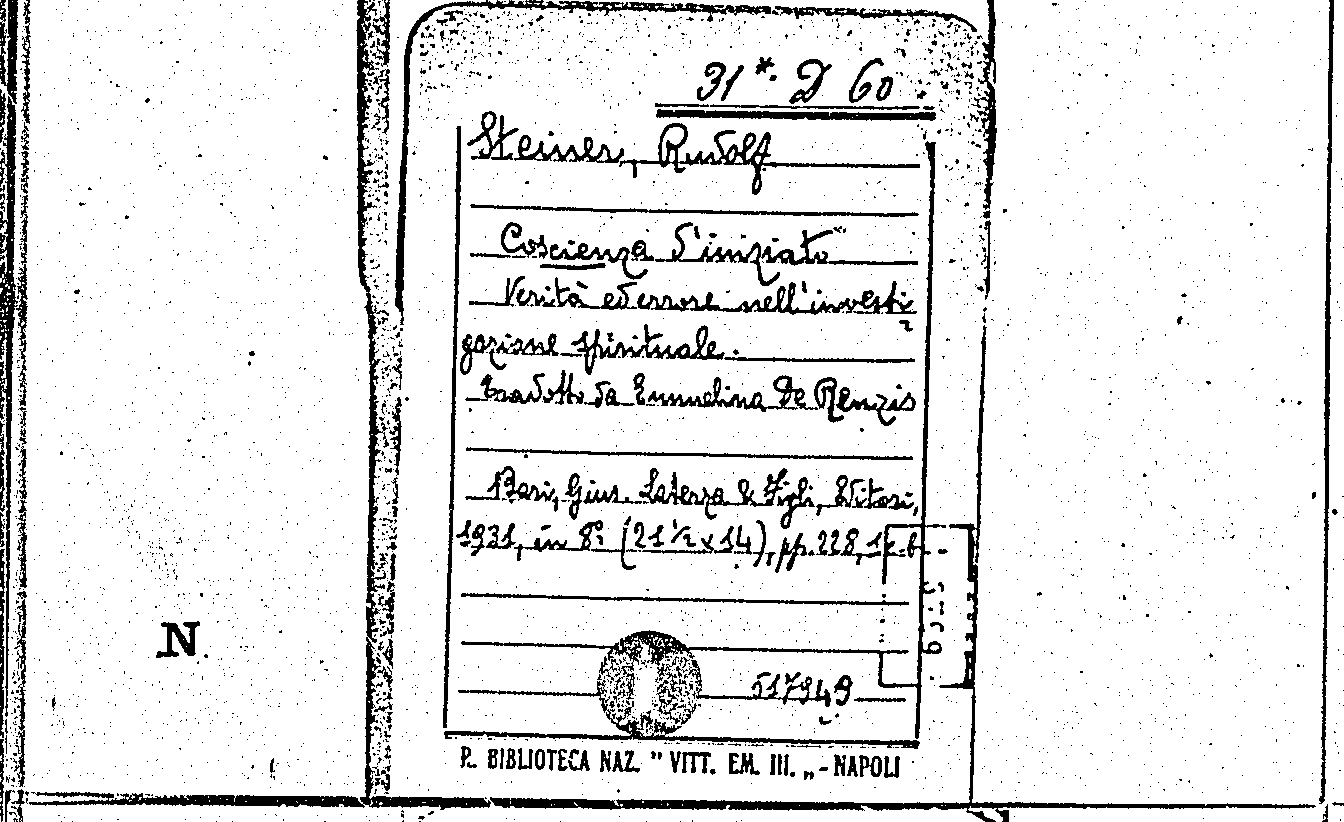 31*. D 60
Steiner, Rudolf
Coscienza d'iniziato
Verità ed errore nell'investi-
gazione spirituale.
tradotto da Emmelina De Renzis
Bari, Gius. Laterza & Figli, Editori,
1931, in 8º (21 ½ x 14), pp. 228,
517949
N
R. BIBLIOTECA NAZ. " VITT. EM. III. „ - NAPOLI